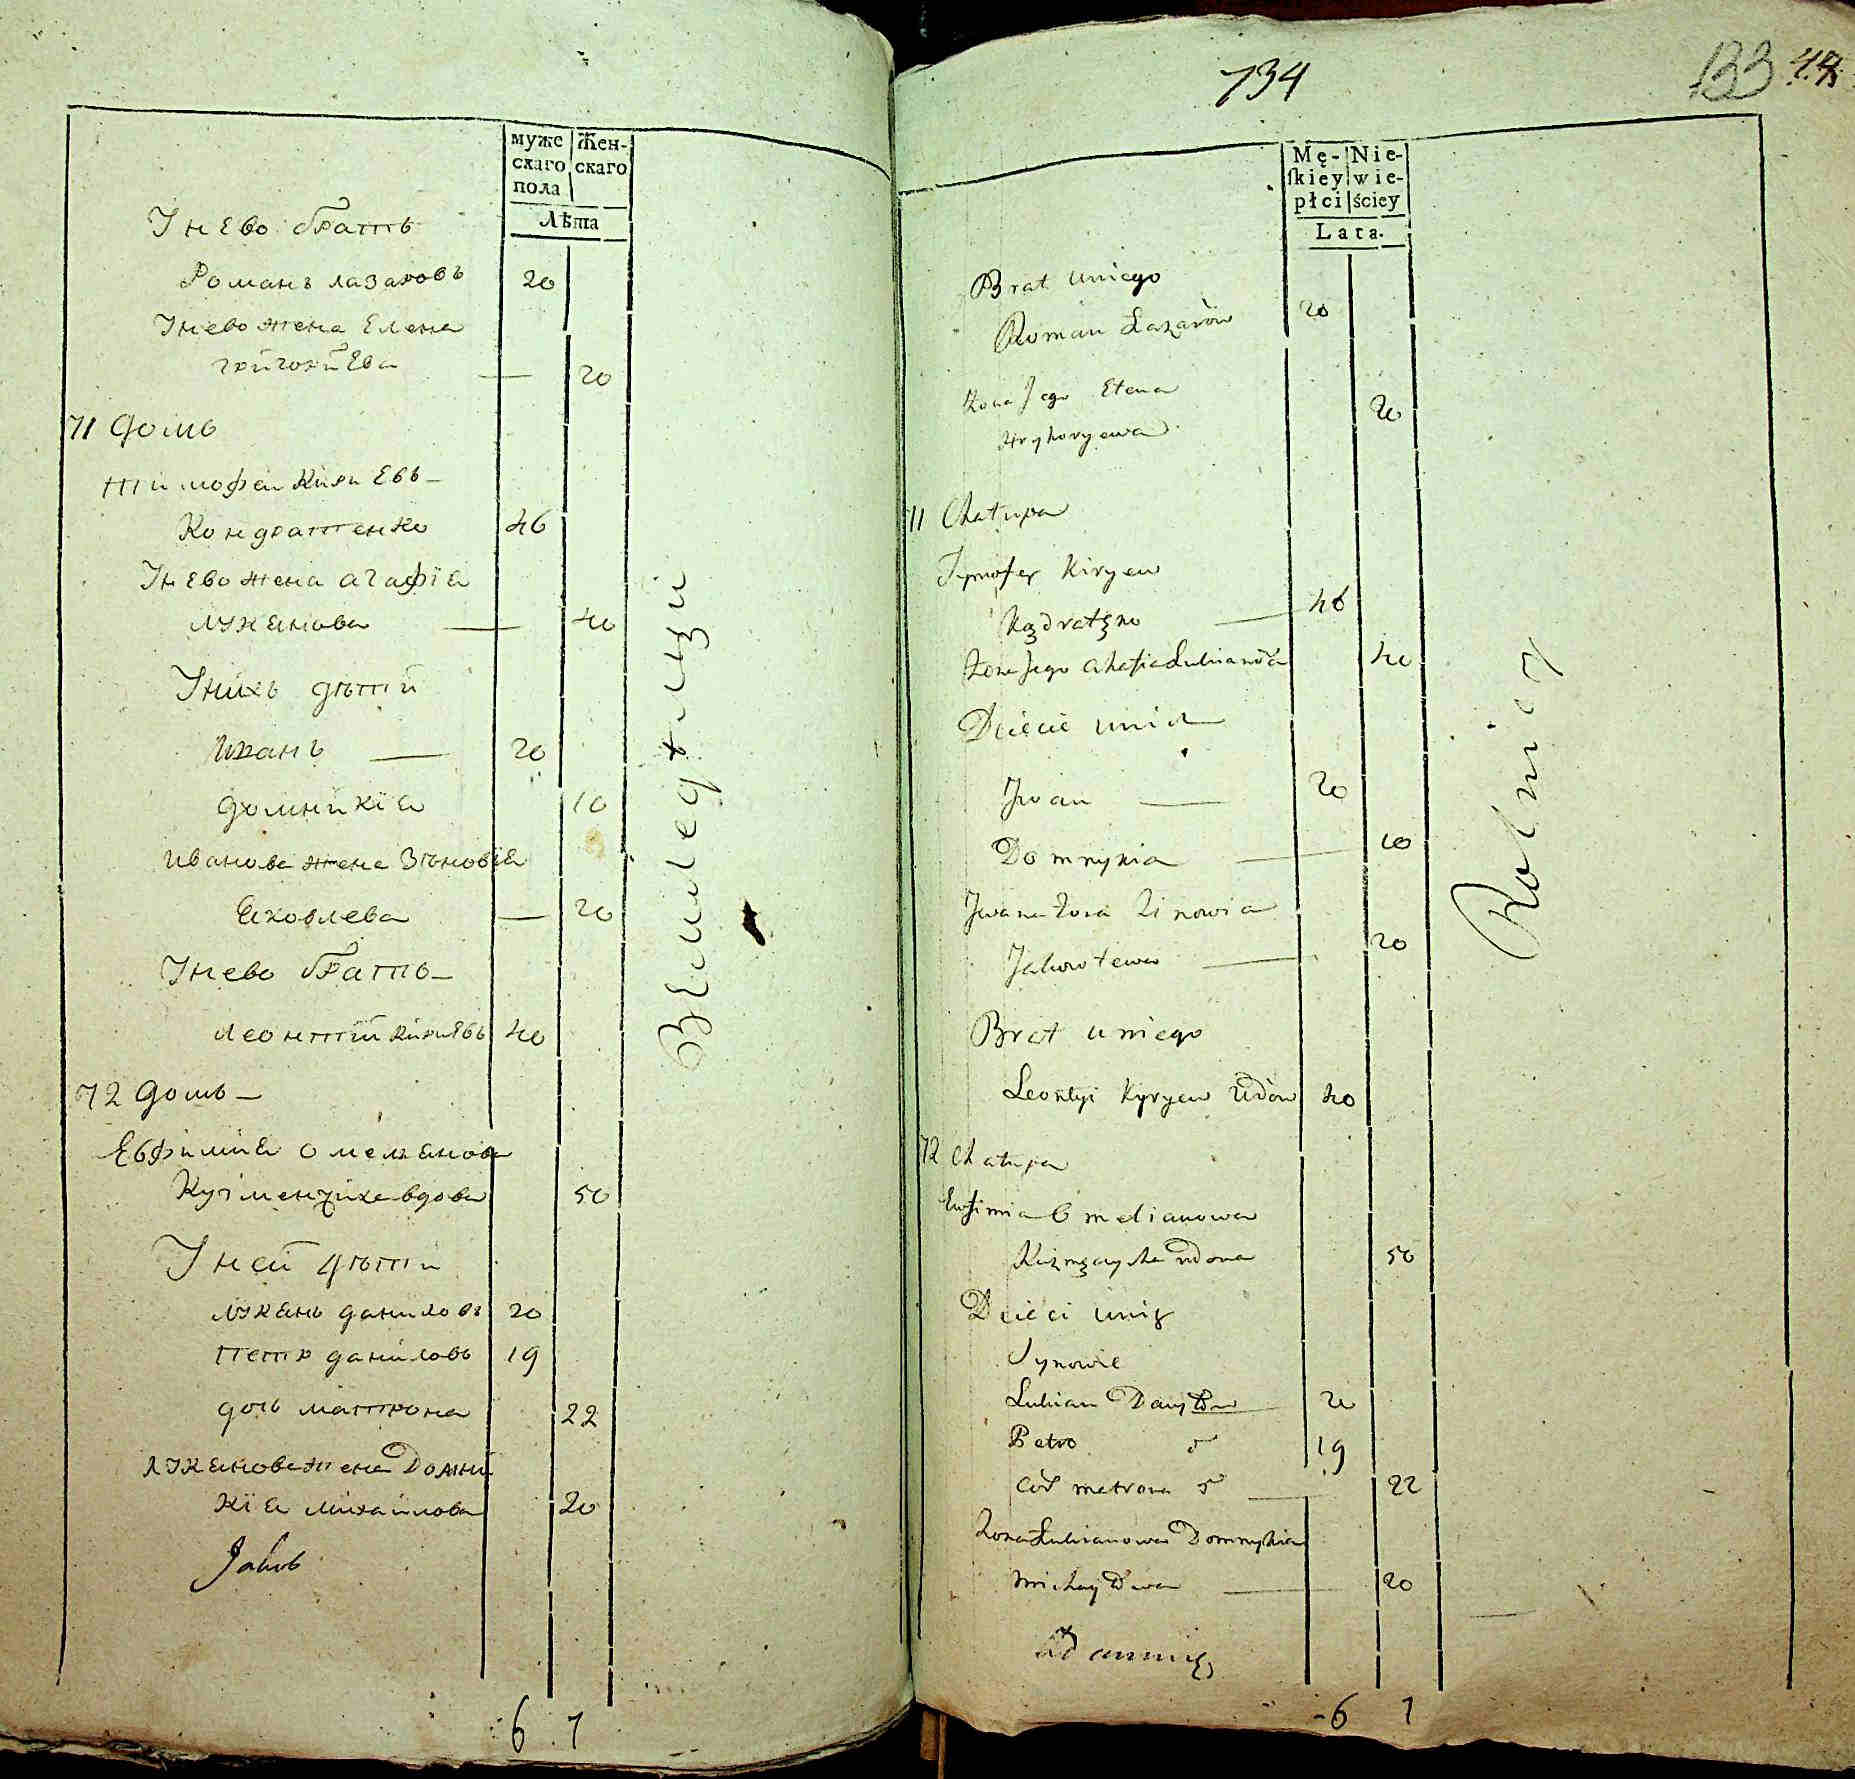 муже
скаго
пола
Жен-
скаго
Лѣта
У нево братъ
Романъ лазаровъ 20
У нево жена Елена
григориева — 20
71 домъ
тимофеи Кириевъ
Кондратенко 46
У нево жена агафїа
лукянова — 40
У нихъ дѣтй
Иванъ — 20
домникїа 10
иванова жена Зѣновїя
Яковлева — 20
У нево братъ
леонтий Кириевъ 40
72 домъ
Евфимия омелянова
Кузменчиха вдова 50
У ней дѣти
лукянъ даниловъ 20
петр даниловъ 19
дочь матрона 22
лукянова жена Домни
кїа михаилова 20
Jakub
6 7
Земледѣлцы
734
133
Mę-
skiey
płci
Nie-
wie-
ściey
Lata.
Brat uniego
Roman Łazarów 20
Żona Jego Elena
Hryhoryewa 20
71 Chałupa
Tymofey Kiryew
Kądratęko — 46
Żona Jego Ahafia Lukianowa 40
Dziecie unich
Jwan — 20
Domnykia — 10
Jwana żona Zinowia
Jakowlewa — 20
Brat uniego
Leontyi Kyryew Wdow 40
72 Chałupa
Eufimia Omelianowa
Kuzmęczycha wdowa 50
Dzieci unię
Synowie
Lukian Danyłow 20
Petro 19
Cór matrona — 22
Żona Lukianowa Domnykia
Michayłowa — 20
6 7
Rolnicy